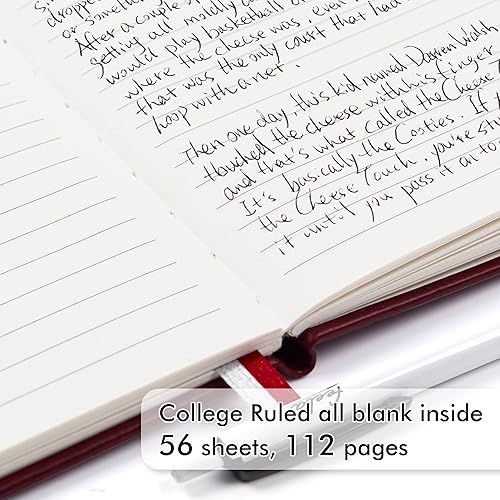 droppe
or somethin
After a couple
getting all moldy a
would play basketball o
where the cheese was, even
that was the only court that had
hoop with a net.
Then one day, this kid named Darren Walsh
touched the cheese with his finger
and that's what called the Cheese T
It's basically the Cooties. If
the Cheese Touch, you're stu
it until you pass it on to
College Ruled all blank inside
56 sheets, 112 pages